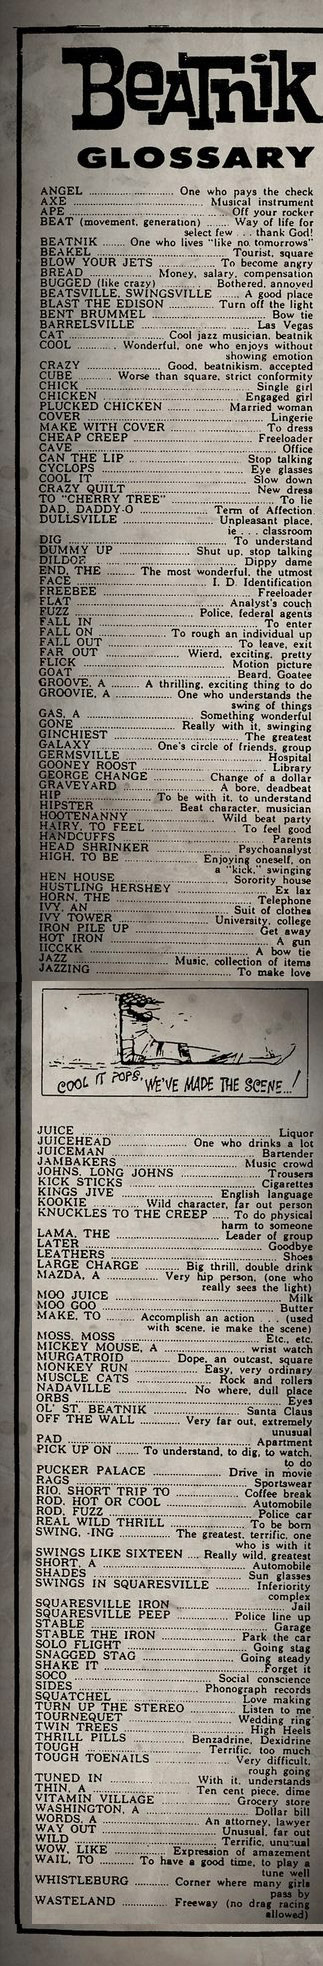 BEATNIK
GLOSSARY
ANGEL ........ One who pays the check
AXE ........ Musical instrument
APE ........ Off your rocker
BEAT (movement, generation) ...... Way of life for
select few . . . thank God!
BEATNIK ....... One who lives "like no tomorrows"
BEAKEL ........ Tourist, square
BLOW YOUR JETS ........ To become angry
BREAD ........ Money, salary, compensation
BUGGED (like crazy) ........ Bothered, annoyed
BEATSVILLE, SWINGSVILLE ...... A good place
BLAST THE EDISON ........ Turn off the light
BENT BRUMMEL ........ Bow tie
BARRELSVILLE ........ Las Vegas
CAT ........ Cool jazz musician, beatnik
COOL ........ Wonderful, one who enjoys without
showing emotion
CRAZY ........ Good, beatnikism, accepted
CUBE ........ Worse than square, strict conformity
CHICK ........ Single girl
CHICKEN ........ Engaged girl
PLUCKED CHICKEN ........ Married woman
COVER ........ Lingerie
MAKE WITH COVER ........ To dress
CHEAP CREEP ........ Freeloader
CAVE ........ Office
CAN THE LIP ........ Stop talking
CYCLOPS ........ Eye glasses
COOL IT ........ Slow down
CRAZY QUILT ........ New dress
TO "CHERRY TREE" ........ To lie
DAD, DADDY-O ........ Term of Affection
DULLSVILLE ........ Unpleasant place,
ie . . . classroom
DIG ........ To understand
DUMMY UP ........ Shut up, stop talking
DILDOP ........ Dippy dame
END, THE ........ The most wonderful, the utmost
FACE ........ I. D. Identification
FREEBEE ........ Freeloader
FLAT ........ Analyst's couch
FUZZ ........ Police, federal agents
FALL IN ........ To enter
FALL ON ........ To rough an individual up
FALL OUT ........ To leave, exit
FAR OUT ........ Wierd, exciting, pretty
FLICK ........ Motion picture
GOAT ........ Beard, Goatee
GROOVE, A ........ A thrilling, exciting thing to do
GROOVIE, A ........ One who understands the
swing of things
GAS, A ........ Something wonderful
GONE ........ Really with it, swinging
GINCHIEST ........ The greatest
GALAXY ........ One's circle of friends, group
GERMSVILLE ........ Hospital
GOONEY ROOST ........ Library
GEORGE CHANGE ........ Change of a dollar
GRAVEYARD ........ A bore, deadbeat
HIP ........ To be with it, to understand
HIPSTER ........ Beat character, musician
HOOTENANNY ........ Wild beat party
HAIRY, TO FEEL ........ To feel good
HANDCUFFS ........ Parents
HEAD SHRINKER ........ Psychoanalyst
HIGH, TO BE ........ Enjoying oneself, on
a "kick," swinging
HEN HOUSE ........ Sorority house
HUSTLING HERSHEY ........ Ex lax
HORN, THE ........ Telephone
IVY, AN ........ Suit of clothes
IVY TOWER ........ University, college
IRON PILE UP ........ Get away
HOT IRON ........ A gun
HCCKK ........ A bow tie
JAZZ ........ Music, collection of items
JAZZING ........ To make love
COOL IT POPS, WE'VE MADE THE SCENE...!
JUICE ........ Liquor
JUICEHEAD ........ One who drinks a lot
JUICEMAN ........ Bartender
JAMBAKERS ........ Music crowd
JOHNS, LONG JOHNS ........ Trousers
KICK STICKS ........ Cigarettes
KINGS JIVE ........ English language
KOOKIE ........ Wild character, far out person
KNUCKLES TO THE CREEP ..... To do physical
harm to someone
LAMA, THE ........ Leader of group
LATER ........ Goodbye
LEATHERS ........ Shoes
LARGE CHARGE ........ Big thrill, double drink
MAZDA, A ........ Very hip person, (one who
really sees the light)
MOO JUICE ........ Milk
MOO GOO ........ Butter
MAKE, TO ........ Accomplish an action . . . (used
with scene, ie make the scene)
MOSS, MOSS ........ Etc., etc.
MICKEY MOUSE, A ........ wrist watch
MURGATROID ........ Dope, an outcast, square
MONKEY RUN ........ Easy, very ordinary
MUSCLE CATS ........ Rock and rollers
NADAVILLE ........ No where, dull place
ORBS ........ Eyes
OL' ST. BEATNIK ........ Santa Claus
OFF THE WALL ........ Very far out, extremely
unusual
PAD ........ Apartment
PICK UP ON ...... To understand, to dig, to watch,
to do
PUCKER PALACE ........ Drive in movie
RAGS ........ Sportswear
RIO, SHORT TRIP TO ........ Coffee break
ROD, HOT OR COOL ........ Automobile
ROD, FUZZ ........ Police car
REAL WILD THRILL ........ To be born
SWING, -ING ........ The greatest, terrific, one
who is with it
SWINGS LIKE SIXTEEN .... Really wild, greatest
SHORT, A ........ Automobile
SHADES ........ Sun glasses
SWINGS IN SQUARESVILLE ........ Inferiority
complex
SQUARESVILLE IRON ........ Jail
SQUARESVILLE PEEP ........ Police line up
STABLE ........ Garage
STABLE THE IRON ........ Park the car
SOLO FLIGHT ........ Going stag
SNAGGED STAG ........ Going steady
SHAKE IT ........ Forget it
SOCO ........ Social conscience
SIDES ........ Phonograph records
SQUATCHEL ........ Love making
TURN UP THE STEREO ........ Listen to me
TOURNEQUET ........ Wedding ring
TWIN TREES ........ High Heels
THRILL PILLS ........ Benzadrine, Dexidrine
TOUGH ........ Terrific, too much
TOUGH TOENAILS ........ Very difficult,
rough going
TUNED IN ........ With it, understands
THIN, A ........ Ten cent piece, dime
VITAMIN VILLAGE ........ Grocery store
WASHINGTON, A ........ Dollar bill
WORDS, A ........ An attorney, lawyer
WAY OUT ........ Unusual, far out
WILD ........ Terrific, unusual
WOW, LIKE ........ Expression of amazement
WAIL, TO ........ To have a good time, to play a
tune well
WHISTLEBURG ........ Corner where many girls
pass by
WASTELAND ........ Freeway (no drag racing
allowed)